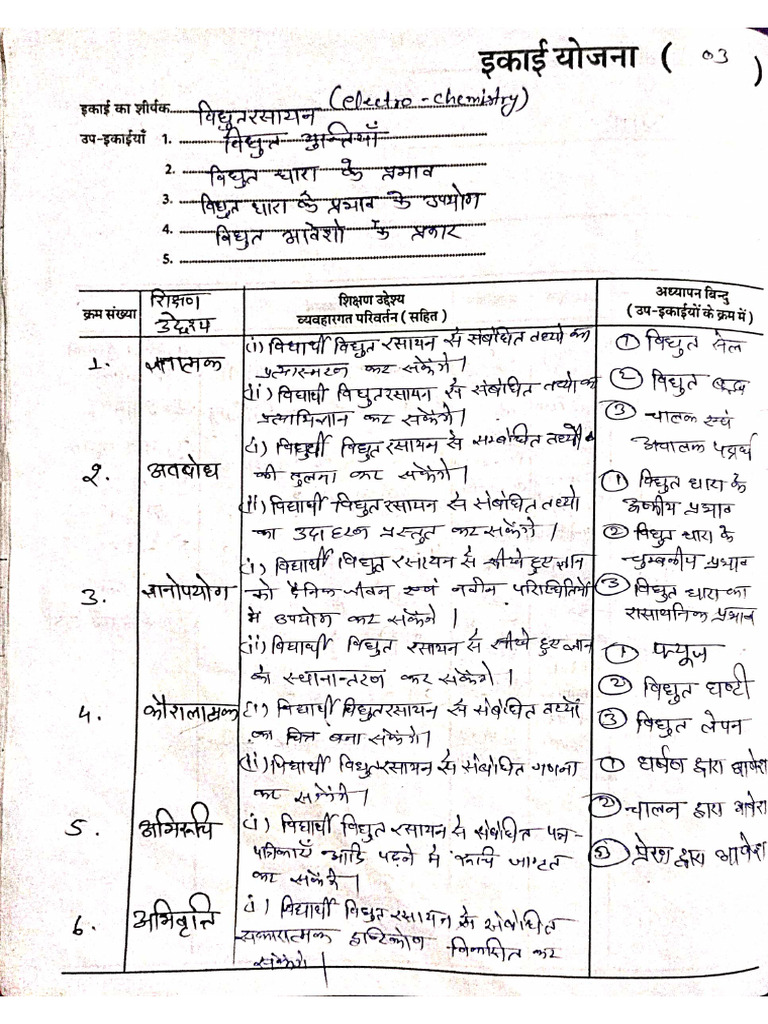 इकाई योजना ( 03 )
इकाई का शीर्षक विद्युतरसायन (electro-chemistry)
उप-इकाईयाँ 1. विद्युत युक्तियाँ
2. विद्युत धारा के प्रभाव
3. विद्युत धारा के प्रभाव के उपयोग
4. विद्युत आवेशो के प्रकार
5.
क्रम संख्या
शिक्षण
उद्देश्य
शिक्षण उद्देश्य
व्यवहारगत परिवर्तन ( सहित )
अध्यापन बिन्दु
( उप-इकाईयों के क्रम में )
1. ज्ञानात्मक
(i) विद्यार्थी विद्युत रसायन से संबोधित तथ्यो का
प्रत्यास्मरण कर सकेंगे।
(ii) विद्यार्थी विद्युतरसायन से संबोधित तथ्यो का
प्रत्याभिज्ञान कर सकेंगे।
2. अवबोध
(i) विद्यार्थी विद्युत रसायन से सम्बोधित तथ्यों
की तुलना कर सकेंगे।
(ii) विद्यार्थी विद्युत रसायन से संबोधित तथ्यो
का उदाहरन प्रस्तुत कर सकेंगे।
3. ज्ञानोपयोग
(i) विद्यार्थी विद्युत रसायन से सीखे हुए ज्ञान
को दैनिक जीवन एवं नवीन परिस्थितियों
मे उपयोग कर सकेंगे।
(ii) विद्यार्थी विद्युत रसायन से सीखे हुए ज्ञान
के स्थानान्तरन कर सकेंगे।
4. कौशलात्मक
(i) विद्यार्थी विद्युतरसायन से संबोधित तथ्यों
का चित्र बना सकेंगे।
(ii) विद्यार्थी विद्युतरसायन से संबोधित गणना
कर सकेंगे।
5. अभिरूचि
(i) विद्यार्थी विद्युत रसायन से संबोधित पत्र-
पत्रिकाएँ आदि पढ़ने मे रूचि जाग्रत
कर सकेंगे।
6. अभिवृत्ति
(i) विद्यार्थी विद्युत रसायन के संबोधित
सकारात्मक दृष्टिकोण विकसित कर
सकेंगे।
① विद्युत सेल
② विद्युत बल्ब
③ चालक एवं
अचालक पदार्थ
① विद्युत धारा के
ऊष्मीय प्रभाव
② विद्युत धारा के
चुम्बकीय प्रभाव
③ विद्युत धारा का
रासायनिक प्रभाव
① फ्यूज
② विद्युत घण्टी
③ विद्युत लेपन
① घर्षण द्वारा आवेश
② चालन द्वारा आवेश
③ प्रेरण द्वारा आवेश